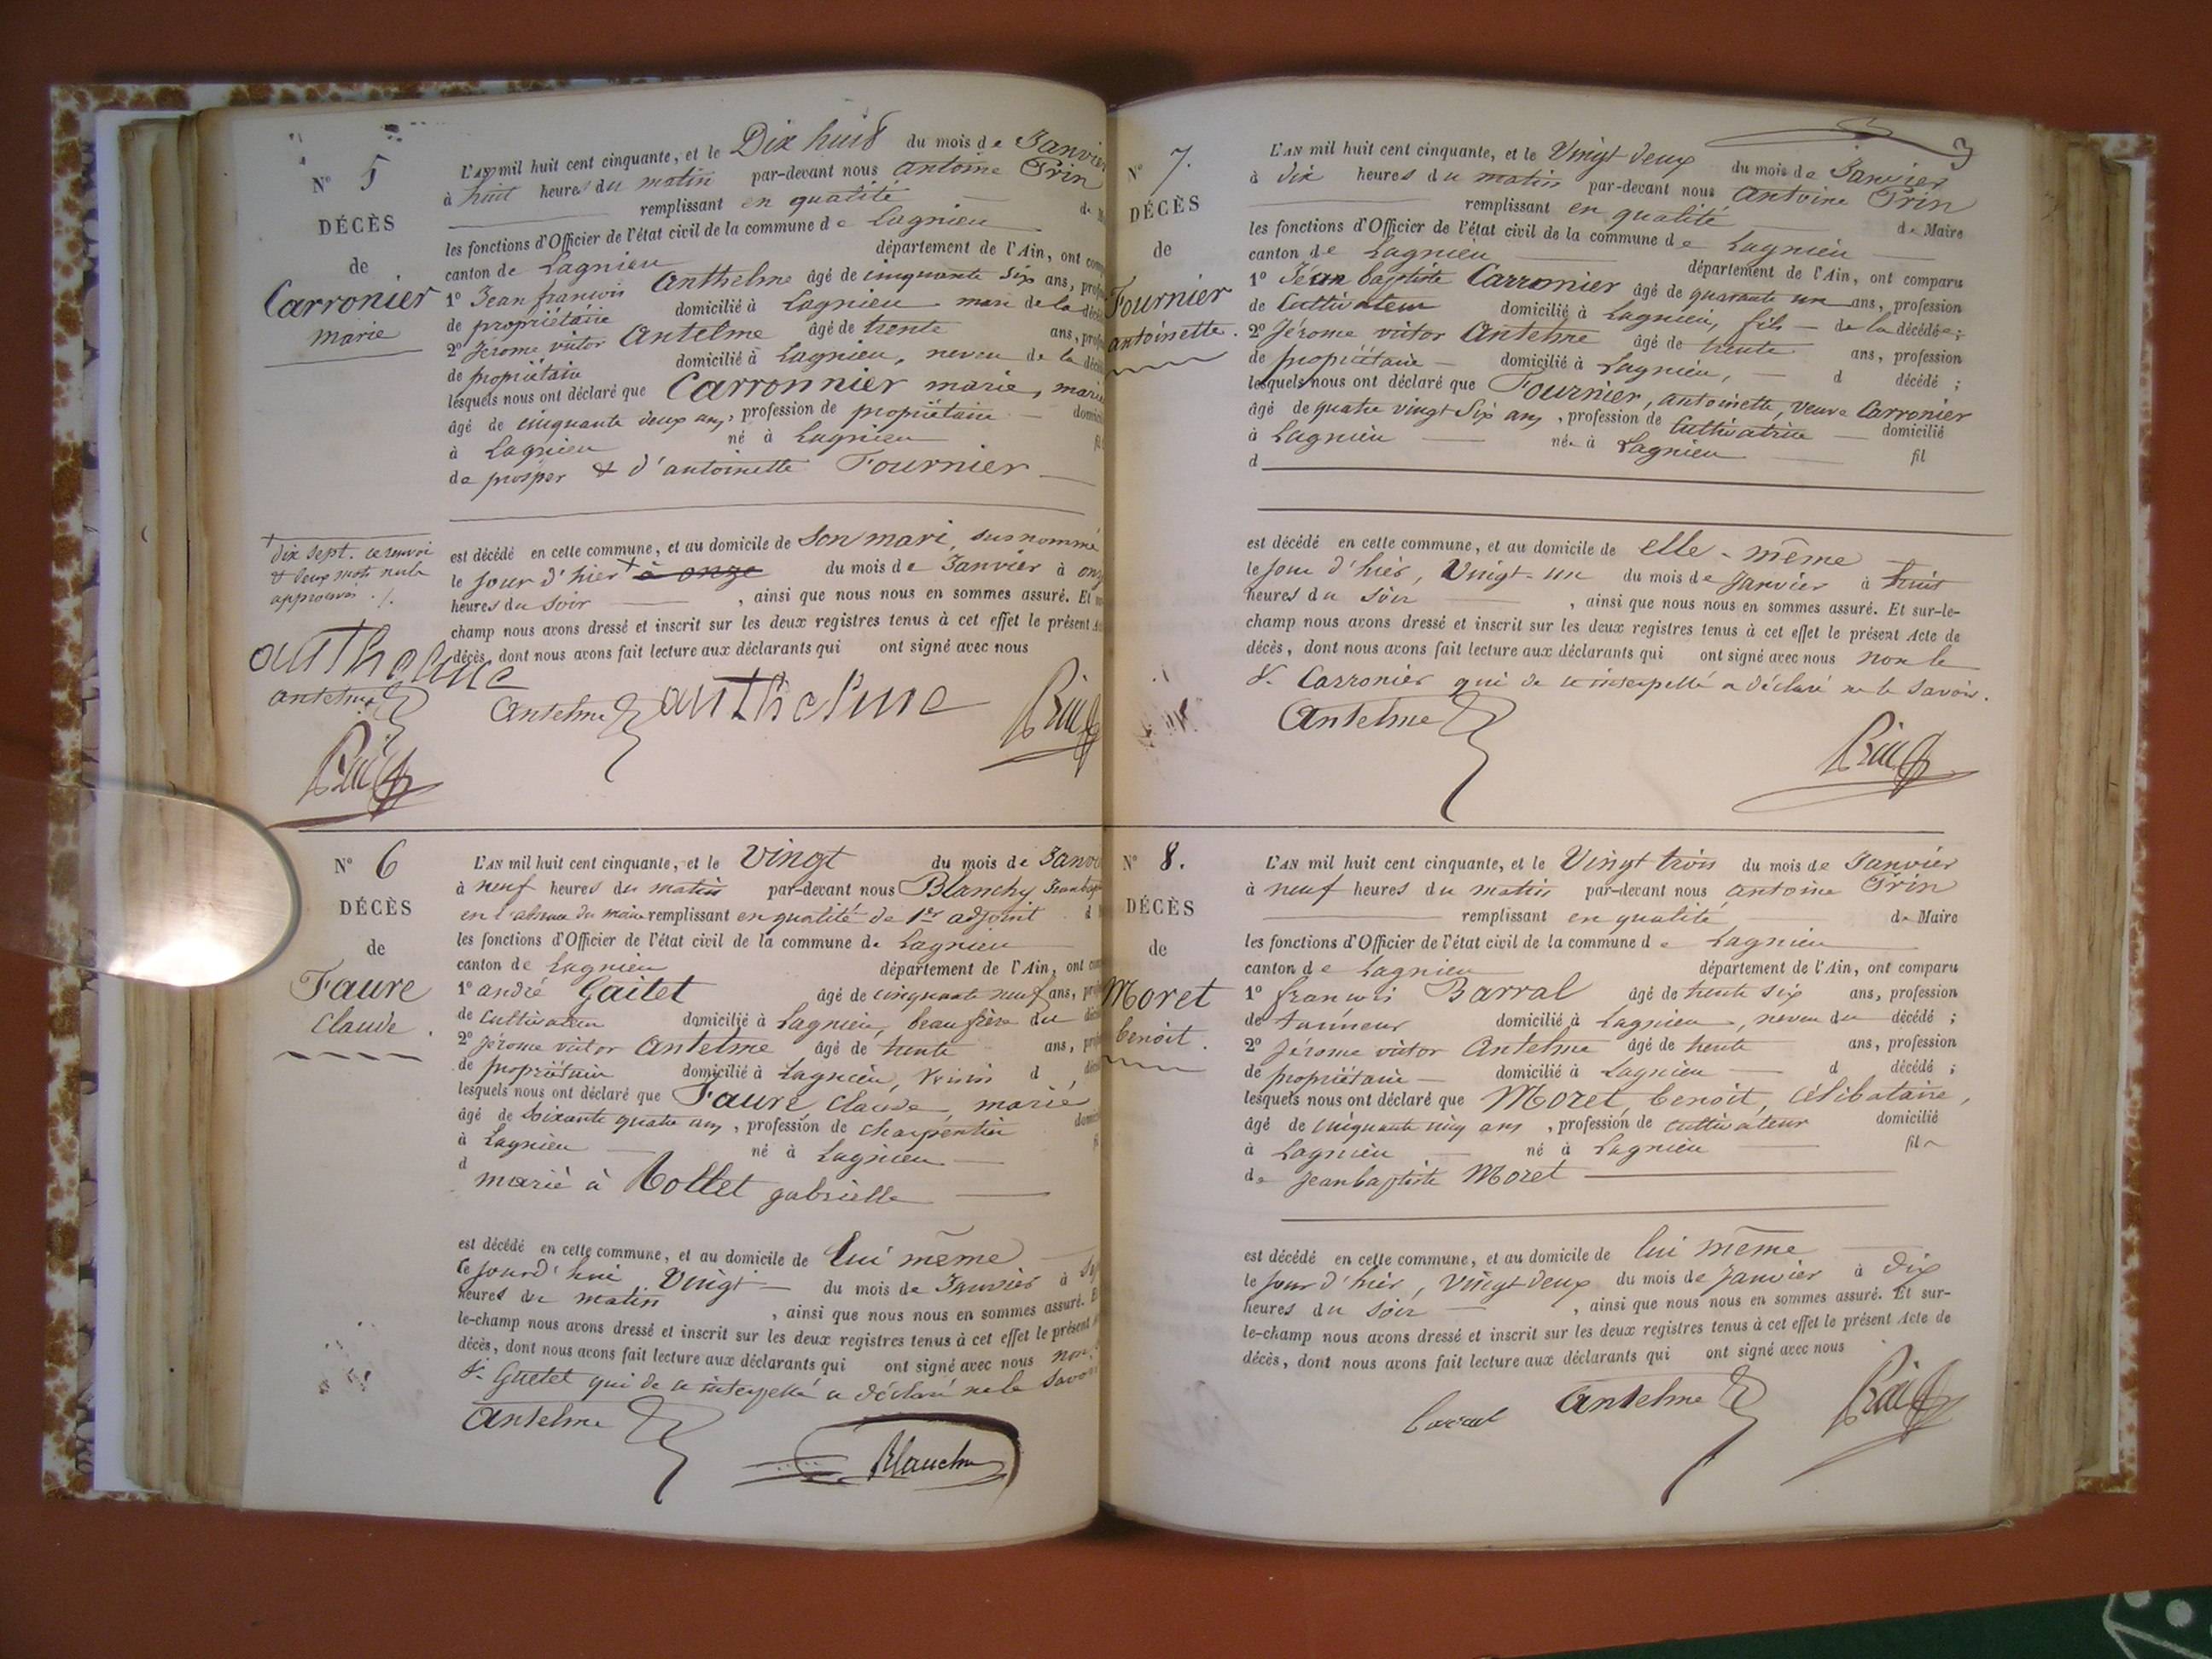 N° 5
DÉCÈS
de
Carronier
marie
L'AN mil huit cent cinquante, et le Dix huit du mois de Janvier
à huit heures du matin par-devant nous antoine Prin
remplissant en qualité de
les fonctions d'Officier de l'état civil de la commune de Lagnieu
canton de Lagnieu département de l'Ain, ont
1° Jean françois Anthelme âgé de cinquante six ans,
de propriétaire domicilié à Lagnieu mari de la
2° Jérome victor Antelme âgé de trente ans,
de propriétaire domicilié à Lagnieu, neveu de la
lesquels nous ont déclaré que Carronnier marie,
âgé de cinquante deux ans, profession de propriétaire
à Lagnieu né à Lagnieu
de prosper & d'antoinette Fournier
+ dix sept. ce renvoi
& deux mots nuls
approuvés ./.
est décédé en cette commune, et au domicile de son mari susnommé
le jour d'hier + à onze du mois de Janvier à
heures du soir , ainsi que nous nous en sommes assuré. Et
champ nous avons dressé et inscrit sur les deux registres tenus à cet effet le présent
décès, dont nous avons fait lecture aux déclarants qui ont signé avec nous
anthelme
Antelme
Antelme anthelme Prin
Prin
N° 6
DÉCÈS
de
Faure
Claude.
L'AN mil huit cent cinquante, et le Vingt du mois de
à neuf heures du matin par-devant nous Blanchy
en l'absence du maire remplissant en qualité de 1er adjoint
les fonctions d'Officier de l'état civil de la commune de Lagnieu
canton de Lagnieu département de l'Ain, ont
1° andré Gaitet âgé de cinquante neuf ans,
de cultivateur domicilié à Lagnieu, beau frère du
2° Jérome victor Antelme âgé de trente ans,
de propriétaire domicilié à Lagnieu, voisin d
lesquels nous ont déclaré que Faure Claude, marié
âgé de soixante quatre ans, profession de charpentier
à Lagnieu né à Lagnieu
d
marié à Rollet gabrielle
est décédé en cette commune, et au domicile de lui même
le jourd'hui Vingt du mois de Janvier à
heures du matin , ainsi que nous nous en sommes assuré.
le-champ nous avons dressé et inscrit sur les deux registres tenus à cet effet le présent
décès, dont nous avons fait lecture aux déclarants qui ont signé avec nous non
S. Guetet qui de ce interpellé a déclaré ne le
Antelme
Blanchy
3
N° 7.
DÉCÈS
de
Fournier
antoinette.
L'AN mil huit cent cinquante, et le Vingt deux du mois de Janvier
à dix heures du matin par-devant nous Antoine Prin
remplissant en qualité de Maire
les fonctions d'Officier de l'état civil de la commune de Lagnieu
canton de Lagnieu département de l'Ain, ont comparu
1° Jean baptiste Carronier âgé de quarante un ans, profession
de Cultivateur domicilié à Lagnieu, fils de la décédée;
2° Jérome victor Antelme âgé de trente ans, profession
de propriétaire domicilié à Lagnieu, d décédé ;
lesquels nous ont déclaré que Fournier, antoinette, veuve Carronier
âgé de quatre vingt six ans, profession de Cultivatrice domicilié
à Lagnieu née à Lagnieu fil
d
est décédé en cette commune, et au domicile de elle-même
le jour d'hier, Vingt-un du mois de Janvier à huit
heures du soir , ainsi que nous nous en sommes assuré. Et sur-le-
champ nous avons dressé et inscrit sur les deux registres tenus à cet effet le présent Acte de
décès, dont nous avons fait lecture aux déclarants qui ont signé avec nous non le
S. Carronier qui de ce interpellé a déclaré ne le savoir.
Antelme Prin
N° 8.
DÉCÈS
de
Moret
benoit.
L'AN mil huit cent cinquante, et le Vingt trois du mois de Janvier
à neuf heures du matin par-devant nous antoine Prin
remplissant en qualité de Maire
les fonctions d'Officier de l'état civil de la commune de Lagnieu
canton de Lagnieu département de l'Ain, ont comparu
1° françois Barral âgé de trente six ans, profession
de tanneur domicilié à Lagnieu, neveu du décédé ;
2° Jérome victor Antelme âgé de trente ans, profession
de propriétaire domicilié à Lagnieu d décédé ;
lesquels nous ont déclaré que Moret, benoit, célibataire,
âgé de cinquante cinq ans, profession de cultivateur domicilié
à Lagnieu né à Lagnieu fils
de Jean baptiste Moret
est décédé en cette commune, et au domicile de lui même
le jour d'hier, Vingt deux du mois de Janvier à dix
heures du soir , ainsi que nous nous en sommes assuré. Et sur-
le-champ nous avons dressé et inscrit sur les deux registres tenus à cet effet le présent Acte de
décès, dont nous avons fait lecture aux déclarants qui ont signé avec nous
barral Antelme Prin